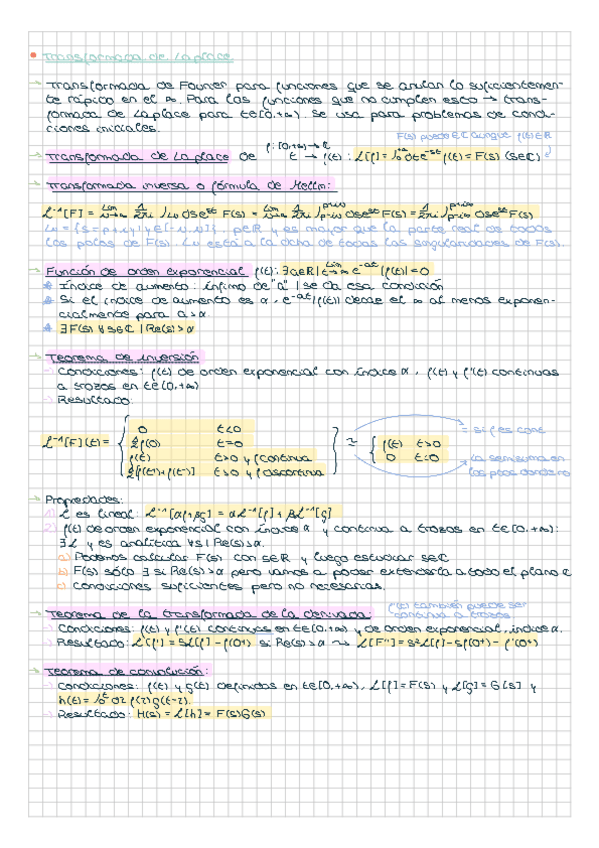 Transformada de Laplace
→ Transformada de Fourier para funciones que se anulan lo suficientemen-
te rápido en el ∞. Para las funciones que no cumplen esto → trans-
formada de Laplace para t∈[0,+∞). Se usa para problemas de condi-
ciones iniciales.
F(s) puede ∈ ℂ aunque f(t)∈ℝ
f: [0,+∞) → ℂ
→ Transformada de Laplace de t → f(t) : ℒ[f] = ∫₀^+∞ dt e^-st f(t) = F(s) (s∈ℂ)
→ Transformada inversa o fórmula de Mellin:
ℒ⁻¹[F] = lim 1/2πi ∫ ds e^st F(s) = lim 1/2πi ∫ ds e^st F(s) = 1/2πi ∫ ds e^st F(s)
= {s = p + iy | y∈[-ν, ν]}. p∈ℝ y es mayor que la parte real de todos
los polos de F(s). Lν está a la dcha de todas las singularidades de F(s).
→ Función de orden exponencial f(t): ∃ a∈ℝ | lim t→∞ e^-at |f(t)| = 0
* Índice de aumento: ínfimo de "a" | se da esa condición
* Si el índice de aumento es α, e^-at |f(t)| decae el ∞ al menos exponen-
cialmente para a>α
* ∃ F(s) ∀ s∈ℂ | Re(s)>α
→ Teorema de inversión
→ Condiciones: f(t) de orden exponencial con índice α, f(t) y f'(t) continuas
a trozos en t∈[0,+∞)
→ Resultado:
0 t<0
½f(0) t=0
ℒ⁻¹[F](t) = f(t) t>0 y f continua ≃ f(t) t>0
½[f(t⁺)+f(t⁻)] t>0 y f discontinua 0 t<0
= si f es cont
La semisuma en
los ptos donde no
→ Propiedades:
1) ℒ es lineal: ℒ⁻¹[αf+βg] = αℒ⁻¹[f] + βℒ⁻¹[g]
2) f(t) de orden exponencial con índice α y continua a trozos en t∈[0,+∞):
∃ ℒ y es analítica ∀s | Re(s)>α.
a) Podemos calcular F(s) con s∈ℝ y luego estudiar s∈ℂ
b) F(s) sólo ∃ si Re(s)>α pero vamos a poder extenderla a todo el plano ℂ
c) Condiciones suficientes pero no necesarias.
→ Teorema de la transformada de la derivada:
f'(t) también puede ser
continua a trozos
→ Condiciones: f(t) y f'(t) continuas en t∈[0,+∞) y de orden exponencial, índice α.
→ Resultado: ℒ[f'] = sℒ[f] - f(0+) si Re(s)>α ⇝ ℒ[f''] = s²ℒ[f] - sf(0+) - f'(0+)
→ Teorema de convolución:
→ Condiciones: f(t) y g(t) definidas en t∈[0,+∞), ℒ[f] = F(s) y ℒ[g] = G[s] y
h(t) = ∫₀^t dz f(z)g(t-z).
→ Resultado: H(s) = ℒ[h] = F(s)G(s)